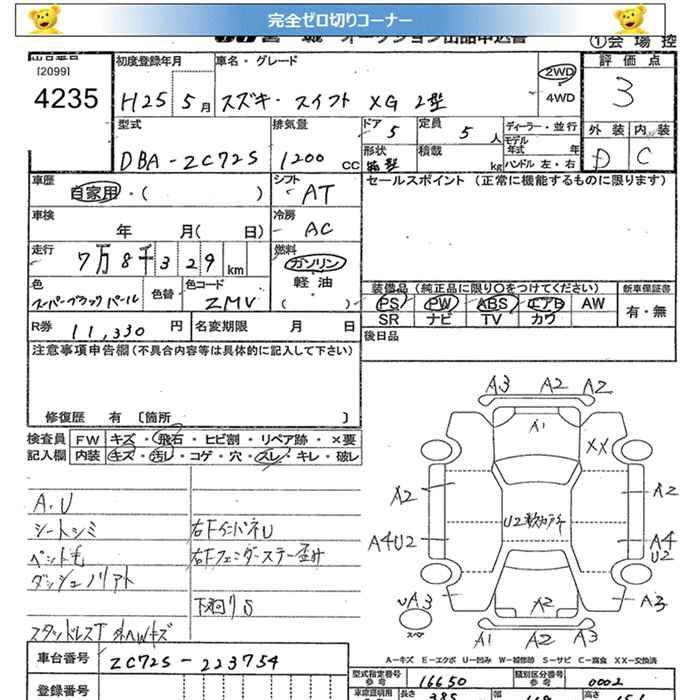 完全ゼロ切りコーナー
オークション出品申込書 ①会場控
[2099] 初度登録年月 車名・グレード 評価点
4235 H25 5月 スズキ・スイフト XG 2型 2WD 4WD 3
型式 排気量 ドア 5 定員 5人 ディーラー・並行 外装 内装
DBA-ZC72S 1200cc 形状 箱型 積載 kg モデル年式 年 ハンドル 左・右 D C
車歴 自家用・( ) シフト AT セールスポイント (正常に機能するものに限ります)
車検 年 月( 日) 冷房 AC
走行 7万8千329km 燃料 ガソリン 軽油 ( )
装備品 (純正品に限り〇をつけてください) 新車保証書
色 スーパーブラックパール 色替 色コード ZMV PS PW ABS エアB AW 有・無
SR ナビ TV カワ
R券 11,330円 名変期限 月 日 後日品
注意事項申告欄 (不具合内容等は具体的に記入して下さい)
修復歴 有 〔箇所 〕
検査員 FW キズ・飛石・ヒビ割・リペア跡・×要
記入欄 内装 キズ・汚レ・コゲ・穴・スレ・キレ・破レ
A.U
シートシミ 右F インパネU
ペット毛 右Fフェンダーステー歪み
ダッシュノリアト
下廻りS
スタッドレス
A3 A2 A2
A1
XX
A2 A2
U2
A4U2 A4
U2
A3 A2 A3
A1 A2 A3
A-キズ E-エクボ U-凹み W-補修跡 S-サビ C-腐食 XX-交換済
車台番号 ZC72S-223754
型式指定番号 参考 16650 類別区分番号 参考 0002
登録番号 長さ 385 幅 高さ